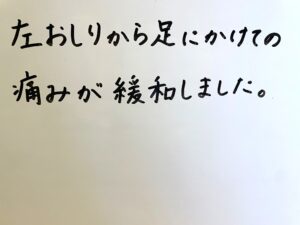 左おしりから足にかけての
痛みが緩和しました。